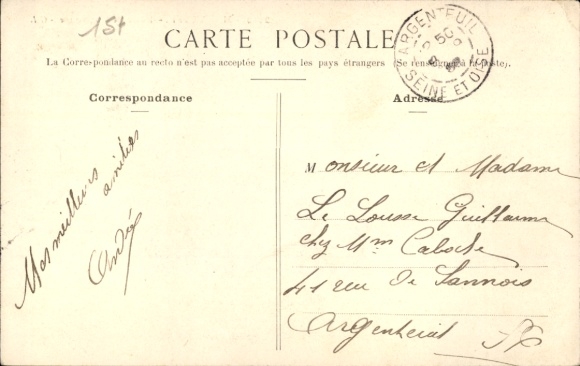 1St
CARTE POSTALE
La Correspondance au recto n'est pas acceptée par tous les pays étrangers (Se renseigner à la Poste).
ARGENTEUIL
SEINE ET OISE
Correspondance
Adresse
Mes meilleures
amitiés
André
Monsieur et Madame
Le Lousse Guillaume
chez Mme
41 rue de Sannois
Argenteuil